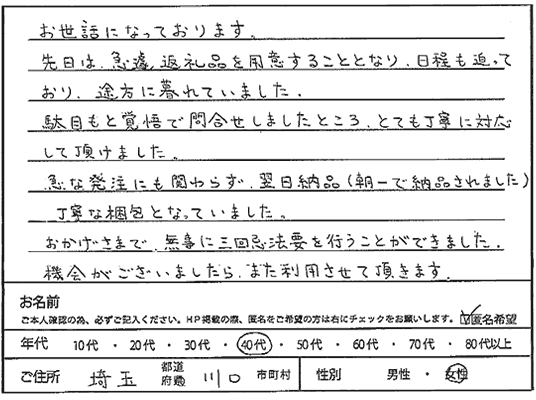 お世話になっております。
先日は、急遽、返礼品を用意することとなり、日程も迫って
おり、途方に暮れていました。
駄目もと覚悟で問合せしましたところ、とても丁寧に対応
して頂けました。
急な発注にも関わらず、翌日納品(朝一で納品されました)
丁寧な梱包となっていました。
おかげさまで、無事に三回忌法要を行うことができました。
機会がございましたら、また利用させて頂きます。
お名前
ご本人確認の為、必ずご記入ください。HP掲載の際、匿名をご希望の方は右にチェックをお願いします。☑匿名希望
年代 10代 ・ 20代 ・ 30代 ・ 40代 ・ 50代 ・ 60代 ・ 70代 ・ 80代以上
ご住所 埼玉 都道府県 川口 市町村 性別 男性 ・ 女性